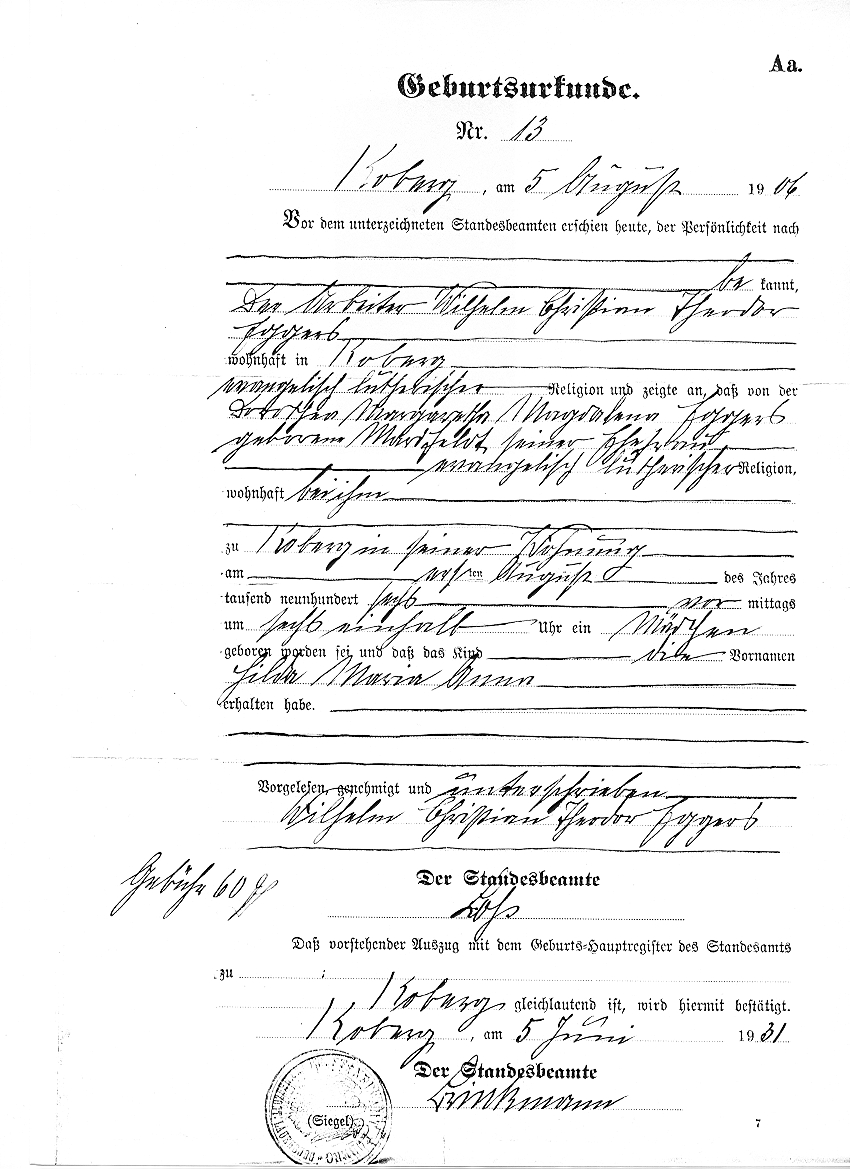 Aa.
Geburtsurkunde.
Nr. 13
Koberg, am 5 August 1906
Vor dem unterzeichneten Standesbeamten erschien heute, der Persönlichkeit nach
be kannt,
Der Arbeiter Wilhelm Christian Theodor
Eggers
wohnhaft in Koberg
evangelisch lutherischer Religion und zeigte an, daß von der
Dorothea Margaretha Magdalena Eggers
geborene Wardfeldt seiner Ehefrau
evangelisch lutherischer Religion,
wohnhaft bei ihm
zu Koberg in seiner Wohnung
am ersten August des Jahres
tausend neunhundert sechs vor mittags
um sechs einhalb Uhr ein Mädchen
geboren worden sei und daß das Kind die Vornamen
Hilda Maria Anna
erhalten habe.
Vorgelesen, genehmigt und unterschrieben
Wilhelm Christian Theodor Eggers
Gebühr 60
Der Standesbeamte
Daß vorstehender Auszug mit dem Geburts-Hauptregister des Standesamts
zu
Koberg gleichlautend ist, wird hiermit bestätigt.
Koberg, am 5 Juni 1931
Der Standesbeamte
Brinkmann
(Siegel)
7